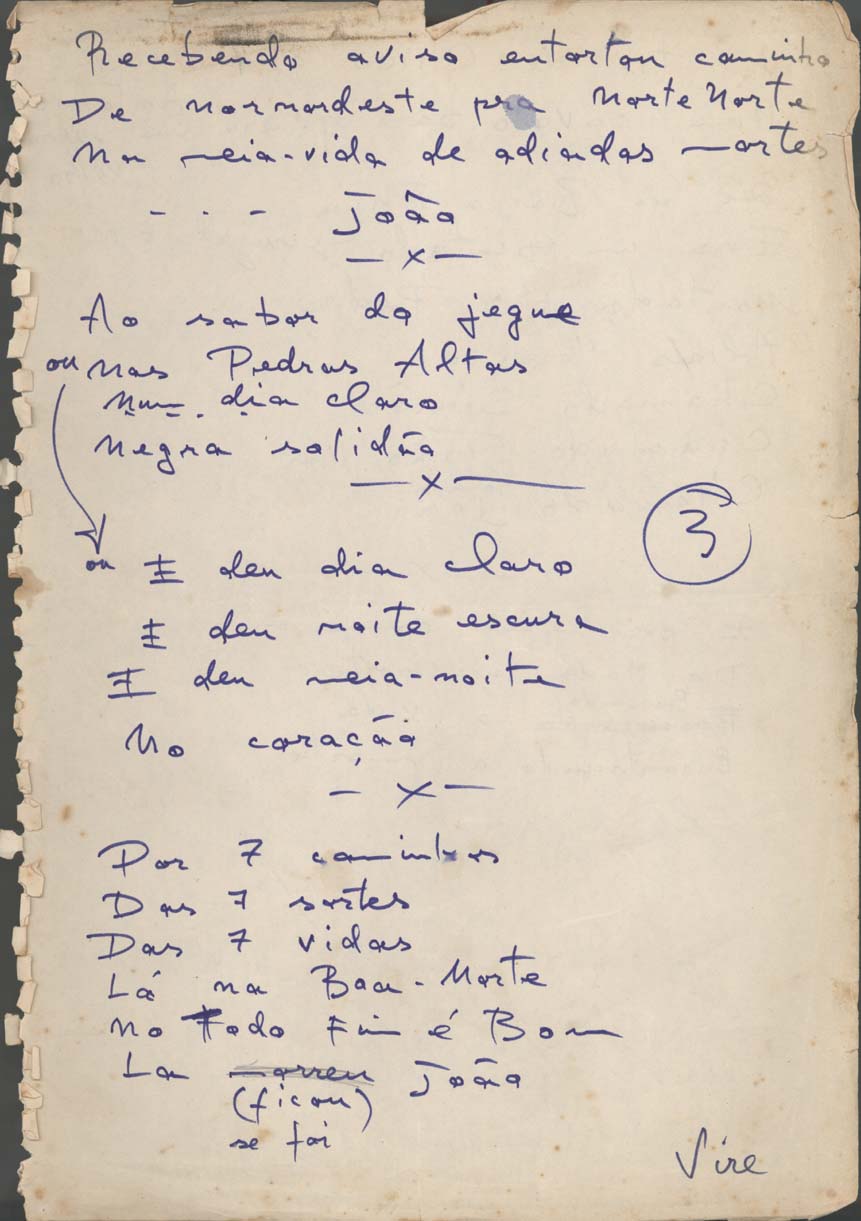 Recebendo aviso entortou caminho
De nornordeste pra Norte Norte
Na meia-vida de adiadas mortes
- . - João
— x —
Ao sabor do jegue
ou nas Pedras Altas
Num dia claro
Negra solidão
— x —
3
ou E deu dia claro
E deu noite escura
E deu meia-noite
No coração
— x —
Por 7 caminhos
Das 7 sortes
Das 7 vidas
Lá na Boa-Morte
No Todo Fim é Bom
La morreu João
(ficou)
se foi
Vire